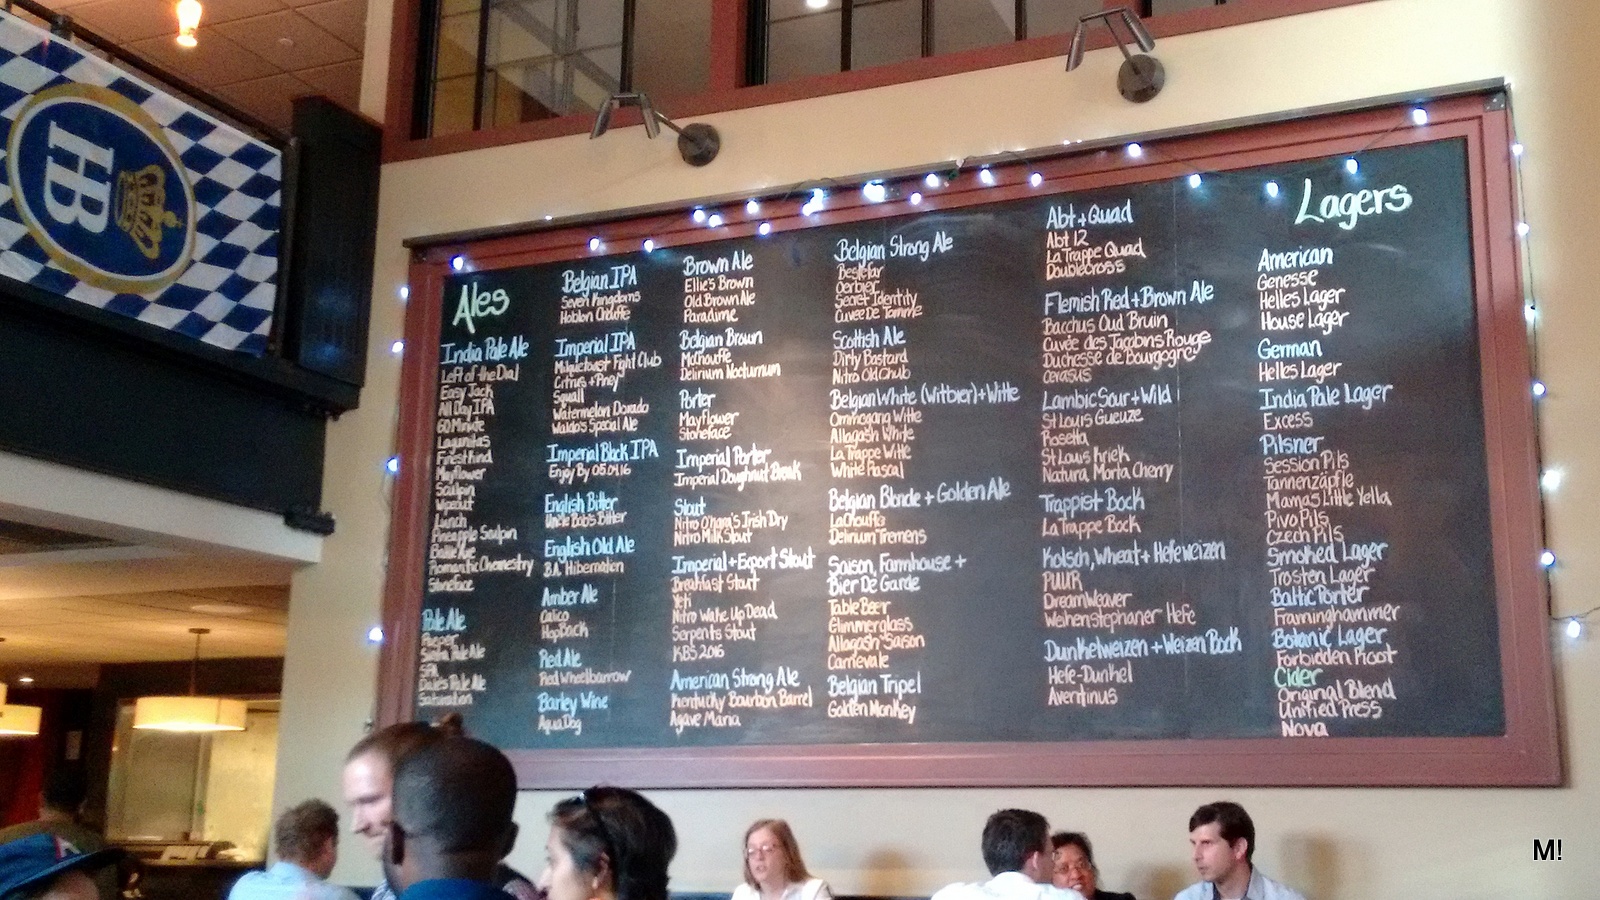 HB
Ales
India Pale Ale
Left of the Dial
Easy Jack
All Day IPA
60 Minute
Lagunitas
Finest Kind
Mayflower
Sculpin
Wipeout
Lunch
Pineapple Sculpin
Romantic Chemestry
Stoneface
Pale Ale
Pale Ale
SPA
Dale's Pale Ale
Belgian IPA
Seven Kingdoms
Hoblon Chouffe
Imperial IPA
Milquetoast Fight Club
Citrus + Piney
Squall
Watermelon Dorado
Waldo's Special Ale
Imperial Black IPA
Enjoy By 05.04.16
English Bitter
Uncle Bob's Bitter
English Old Ale
B.A. Hibernation
Amber Ale
Calico
HopBack
Red Ale
Red Wheelbarrow
Barley Wine
Aqua Dog
Brown Ale
Ellie's Brown
Old Brown Ale
Paradime
Belgian Brown
McChouffe
Delirium Nocturnum
Porter
Mayflower
Stoneface
Imperial Porter
Imperial Doughnut Break
Stout
Nitro O'hara's Irish Dry
Nitro Milk Stout
Imperial + Export Stout
Breakfast Stout
Yeti
Nitro Wake Up Dead
Serpents Stout
KBS 2016
American Strong Ale
Kentucky Bourbon Barrel
Agave Maria
Belgian Strong Ale
Bestefar
Oerbier
Secret Identity
Cuvee De Tomme
Scottish Ale
Dirty Bastard
Nitro Old Chub
Belgian White (Witbier) + Witte
Ommegang Witte
Allagash White
La Trappe Witte
White Rascal
Belgian Blonde + Golden Ale
LaChouffe
Delirium Tremens
Saison, Farmhouse +
Bier De Garde
Table Beer
Glimmerglass
Allagash Saison
Carnevale
Belgian Tripel
Golden Monkey
Abt + Quad
Abt 12
La Trappe Quad
DoubleCross
Flemish Red + Brown Ale
Bacchus Oud Bruin
Cuvée des Jacobins Rouge
Duchesse de Bourgogne
Cerasus
Lambic Sour + Wild
St Louis Gueuze
Rosetta
St Louis Kriek
Natura Morta Cherry
Trappist Bock
La Trappe Bock
Kolsch, Wheat + Hefeweizen
PUUR
DreamWeaver
Weihenstephaner Hefe
Dunkelweizen + Weizen Bock
Hefe-Dunkel
Aventinus
Lagers
American
Genesse
Helles Lager
House Lager
German
Helles Lager
India Pale Lager
Excess
Pilsner
Session Pils
Tannenzapfle
Mama's Little Yella
Pivo Pils
Czech Pils
Smoked Lager
Trosten Lager
Baltic Porter
Framinghammer
Botanic Lager
Forbidden Root
Cider
Original Blend
Unified Press
Nova
M!